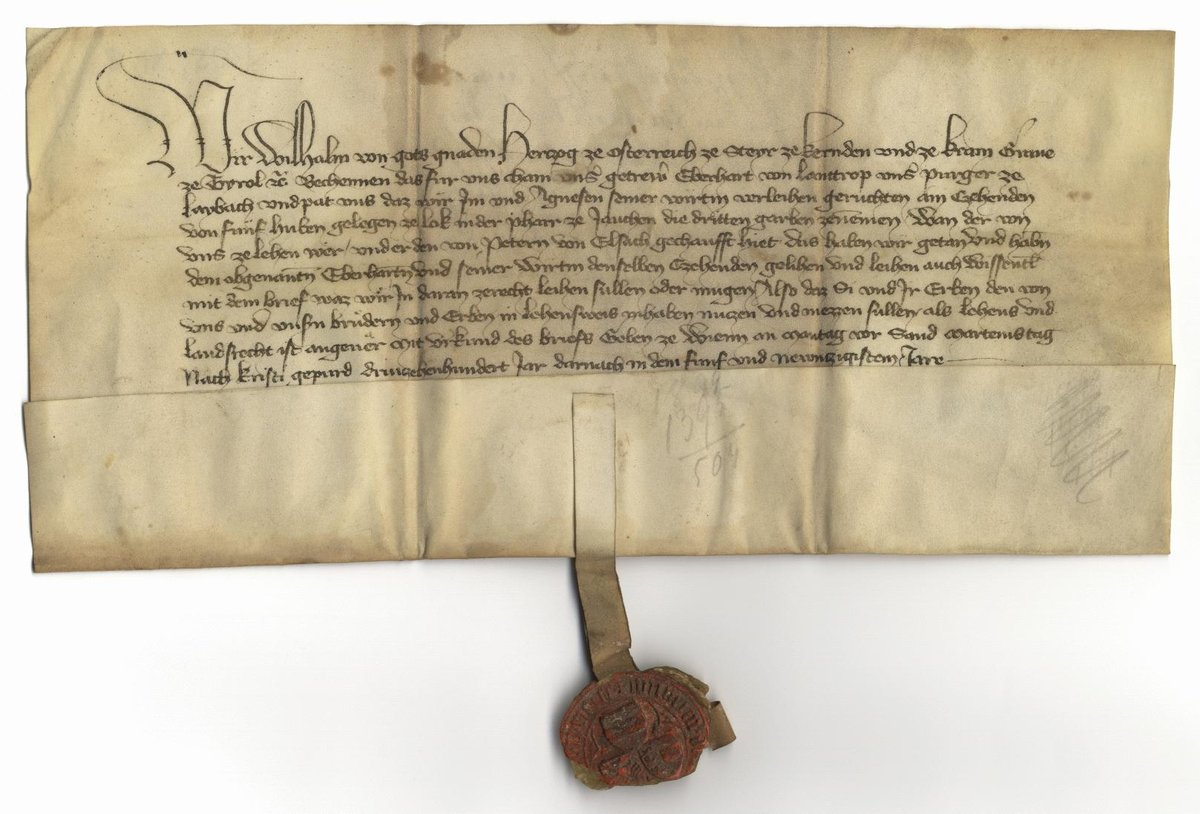 Wir Wilhalm von gots gnaden Hertzog ze Osterreich ze Steyr ze kernden vnd ze krain Graue
ze Tyrol etc Bechennen das für vns cham vnser getrewr Eberhart von purger ze
Laybach vnd pat vns daz wir Im vnd Agnesen seiner wirtin verleihen geruchten ain Zehenden
von fünf huben gelegen ze Lok in der pharr ze Jauchen die dritten garben zenemen Wan der von
vns ze lehen wer vnd er den von Petern von Elsach gechaufft hiet das haben wir getan vnd habn
dem obgenantn Eberhartn vnd seiner wirtin denselben Czehenden gelihen vnd leihen auch wissentl
mit dem brief waz wir In daran zerecht leihen sullen oder mugen Also daz Si vnd Ir Erben den von
vns vnd vnsern brüdern vnd Erben in lehensweis innhaben nuczen vnd niezzen sullen als lehens vnd
landsrecht ist Mit vrkund des briefs Geben ze Wienn an Montag vor Sand Marteinstag
Nach kristi gepurd drewzehenhundert Jar darnach in dem fünf vnd newnczigistem Jare